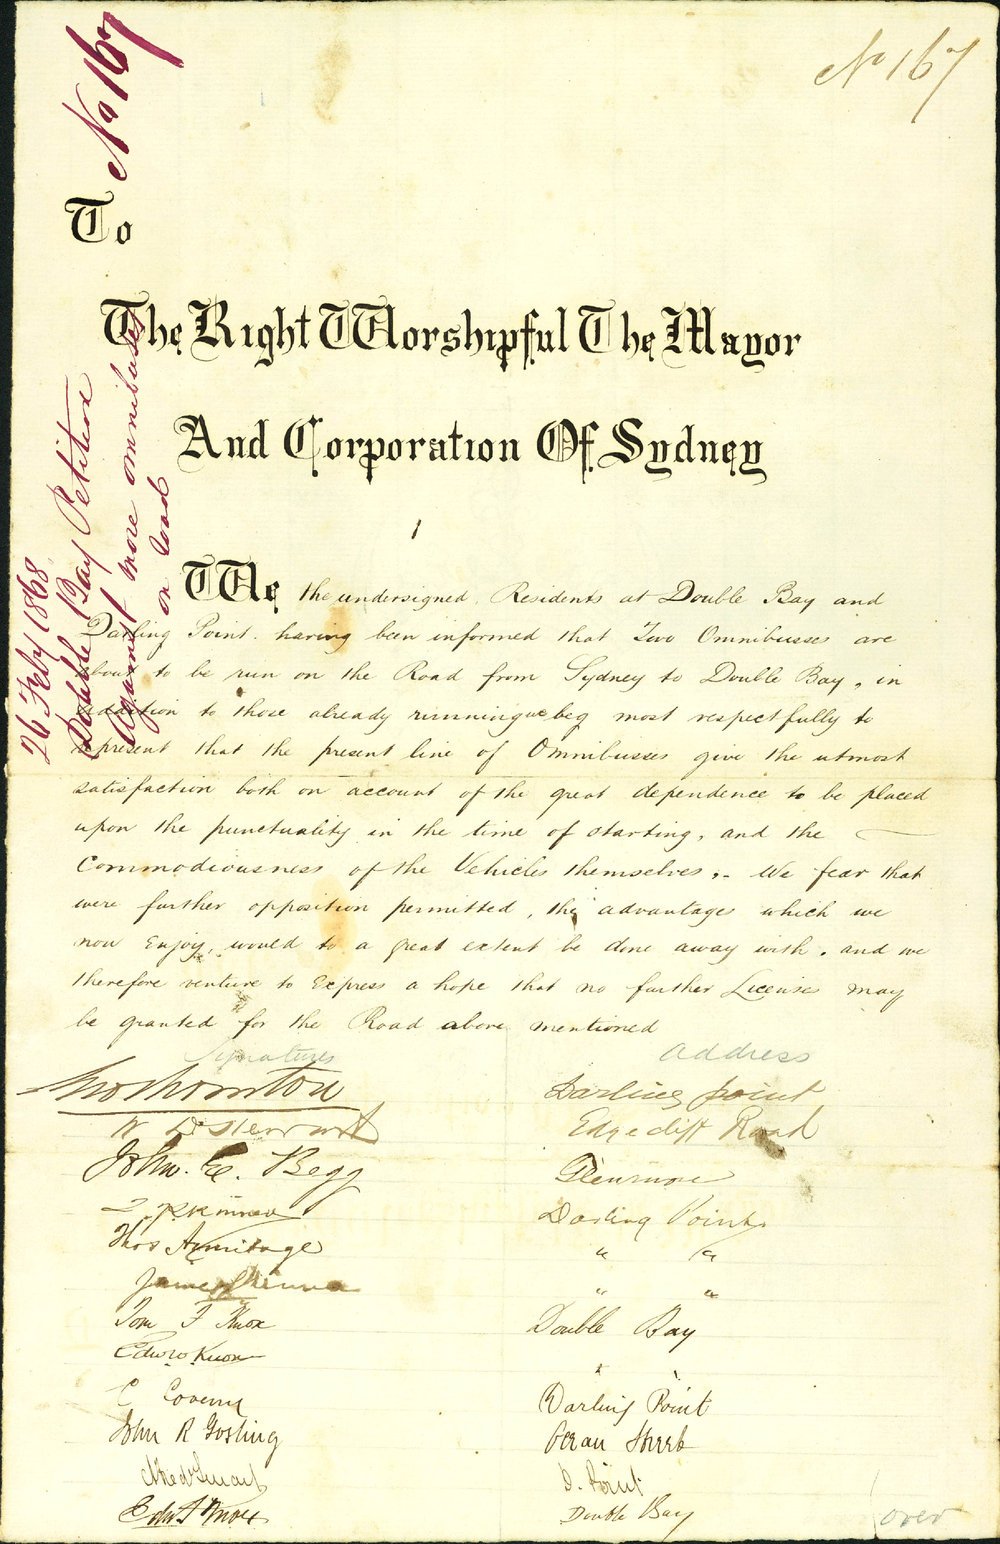 No 167
No 167
26 Feby 1868
Double Bay Petition
Against more omnibuses
on road
To
The Right Worshipful The Mayor
And Corporation Of Sydney
We the undersigned, Residents at Double Bay and
Darling Point. having been informed that Two Omnibusses are
about to be run on the Road from Sydney to Double Bay, in
addition to those already running we beg most respectfully to
represent that the present line of Omnibusses give the utmost
satisfaction both on account of the great dependence to be placed
upon the punctuality in the time of starting, and the
Commodiousness of the Vehicles themselves,. We fear that
were further opposition permitted, the advantages which we
now Enjoy, would to a great extent be done away with, and we
therefore venture to Express a hope that no further Licenses may
be granted for the Road above mentioned
Signatures address
Geo Thornton Darling point
Edgecliff Road
John. E. Begg Glenmore
Darling Point
Thos Armitage " "
James " "
Tom F Knox Double Bay
Edwd Knox "
Darling Point
John R Gosling Ocean Street
D. Point
Edwd Knox Double Bay
over